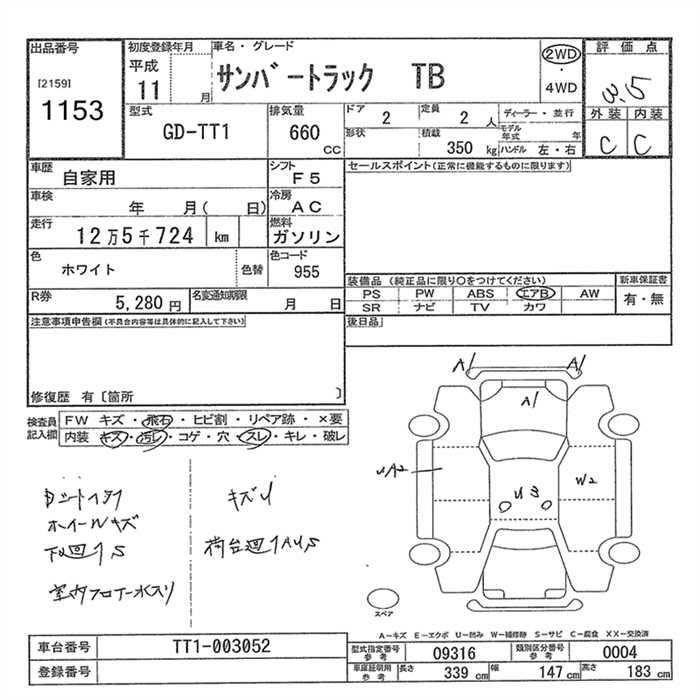 出品番号
[2159]
1153
初度登録年月
平成
11 月
車名・グレード
サンバートラック TB
2WD
・
4WD
評価点
3.5
外装 内装
C C
型式
GD-TT1
排気量
660 CC
ドア
2
定員
2 人
形状
積載
350 kg
ディーラー・並行
モデル年式 年
ハンドル 左・右
車歴
自家用
シフト
F5
車検
年 月( 日)
冷房
AC
走行
12万5千724 km
燃料
ガソリン
色
ホワイト
色替
色コード
955
R券
5,280 円
名変通知期限
月 日
注意事項申告欄(不具合内容等は具体的に記入して下さい)
修復歴 有〔箇所 〕
セールスポイント(正常に機能するものに限ります)
装備品 (純正品に限り○をつけてください)
PS PW ABS エアB AW
SR ナビ TV カワ
新車保証書
有・無
後日品
検査員記入欄
FW キズ・飛石・ヒビ割・リペア跡・×要
内装 キズ・汚レ・コゲ・穴・スレ・キレ・破レ
ホイールキズ
下廻りS
室内フロアー水入り
キズU
A1 A1
A1
UA2
U3
W2
スペア
A-キズ E-エクボ U-凹み W-補修跡 S-サビ C-腐食 XX-交換済
車台番号
TT1-003052
登録番号
型式指定番号 参考
09316
類別区分番号 参考
0004
車庫証明用 参考
長さ 339 cm
幅 147 cm
高さ 183 cm